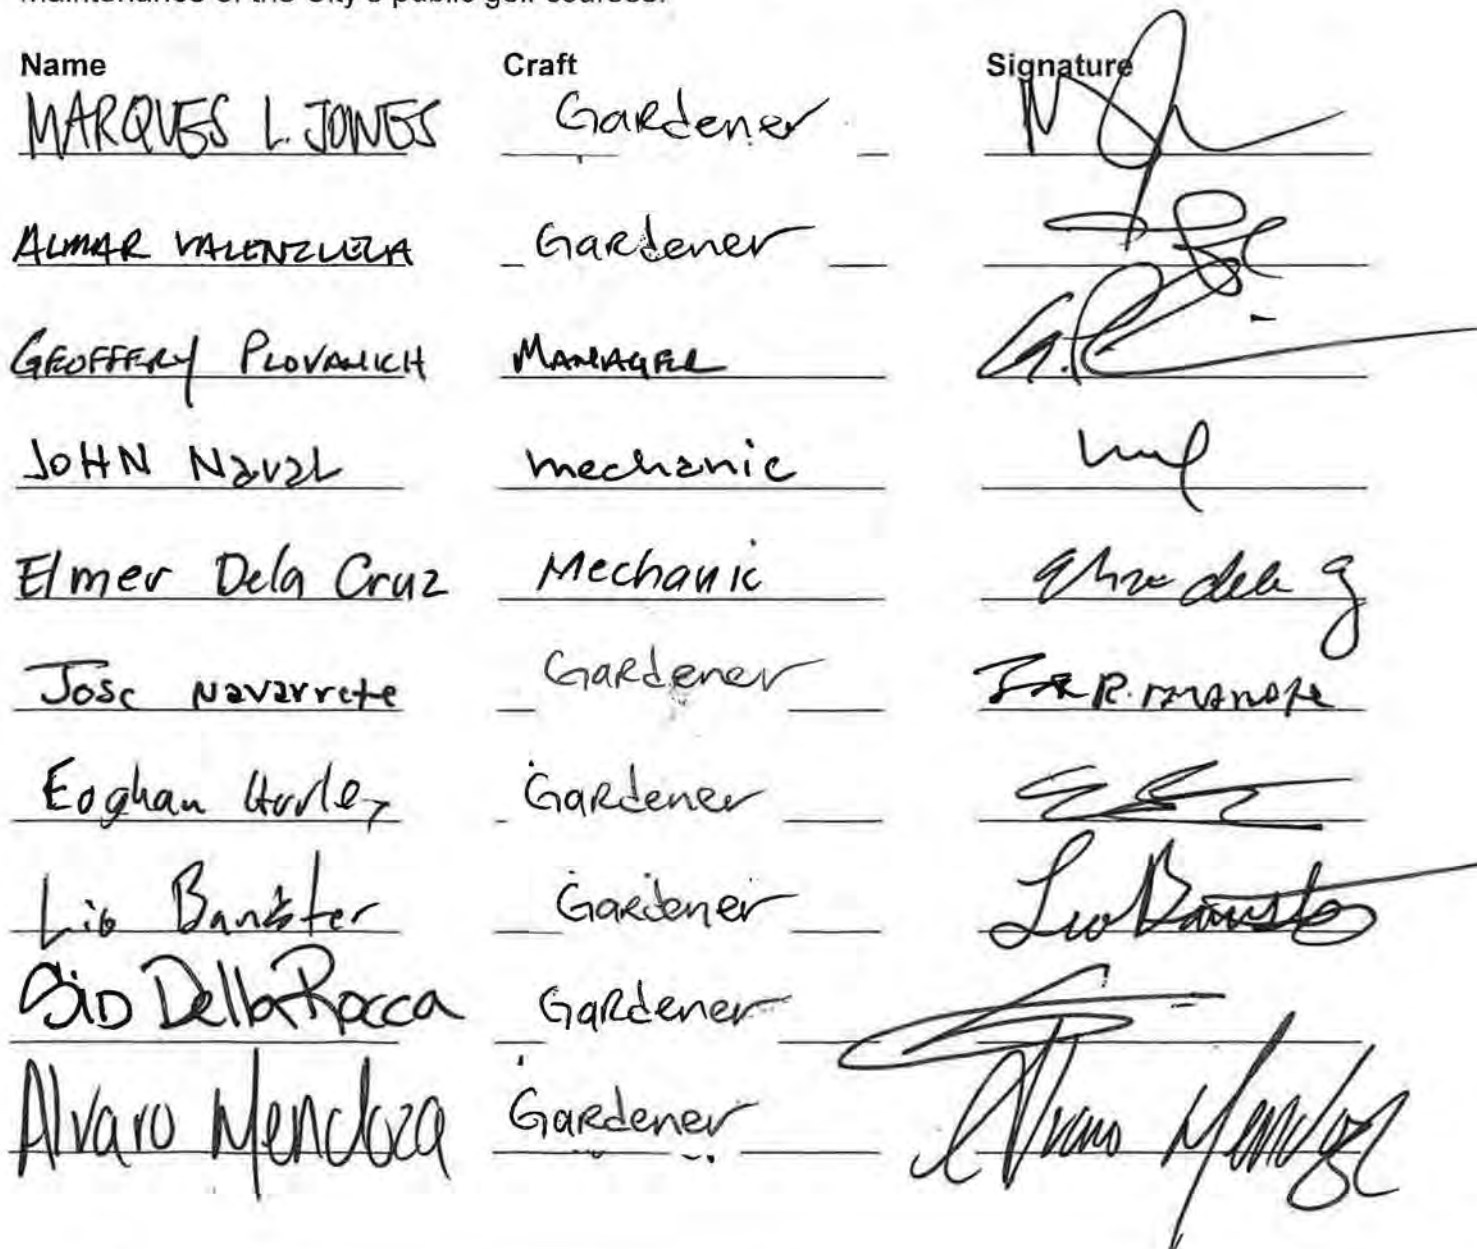 maintenance of the City's public golf courses.
Name Craft Signature
MARQUES L. JONES Gardener
ALMAR VALENZUELA Gardener
GEOFFERY PLOVANICH MANAGER
JOHN NAVAL mechanic
Elmer Dela Cruz Mechanic
Jose Navarrete Gardener
Eoghan Hurley Gardener
Lio Banister Gardener
SiD DellaRocca Gardener
Alvaro Mendoza Gardener Alvaro Mendoza